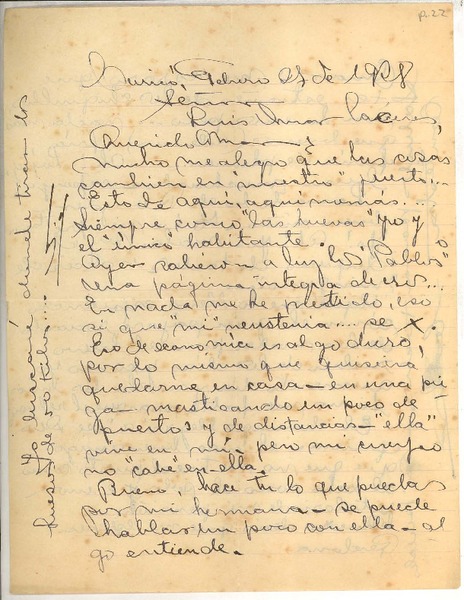 p. 22
Curicó Febrero 25 de 1928
Señor
Luis Omar Cáceres,
Querido Omar:
Mucho me alegro que las cosas
cambien en "nuestro" puerto...
Esto de aquí, aquí nomás...
Siempre como "las huevas" yo y
el "único" habitante.
Ayer salieron a luz los "Pablos"
una página íntegra de
En nada me he metido, eso
si que "mi" neurstenia.... se X.
Eso de economía es algo duro,
por lo mismo que quisiera
quedarme en casa - en una pie
za - masticando un poco de
puertos y de distancias - "ella"
vive en mí, pero mi cuerpo
no "cabe" en ella.
Bueno, hace tu lo que puedas
por mi hermana - se puede
hablar un poco con ella - al
go entiende.
Yo buscaré donde tras los
huesos de 50 kilos...